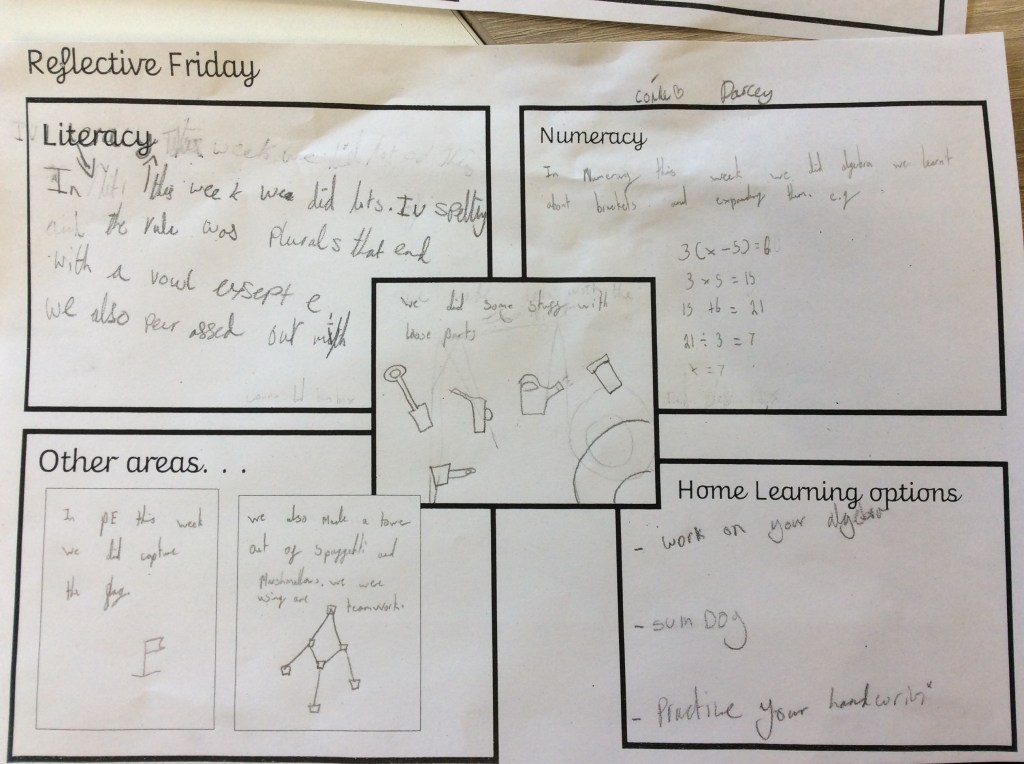 Reflective Friday
Darcey
Literacy
In This week we did lots. In spelling
the rule was plurals that end
with a vowl exsept e
we also peer assed our
Numeracy
In Numeracy this week we did algebra we learnt
about brackets and expanding them. e.g
3(x-5)=6
3 x 5 = 15
15 +6 = 21
21 ÷ 3 = 7
x = 7
we did some stuff with
loose parts
Other areas. . .
In PE this week
we did capture
the flag
we also made a tower
out of spaggetti and
Marshmallows. we were
using are teamwork.
Home Learning options
- work on your algebra
- sumDog
- Practise your handwriting